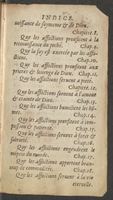 INDICE.
noissance de soymesme & de Dieu.
Chapitre 8.
Que les afflictions promeuvent à la
recognoissance du peché. Chap. 9.
Que la foy est exercée par les affli-
ctions. Chap. 10.
Que les afflictions promeuvent aux
prieres & louange de Dieu. Chap. 11.
Que les afflictions servent à pieté.
Chapitre 12.
Que les afflictions servent à l'amour
& crainte de Dieu. Chap. 13.
Que les afflictions servent à
Chap. 14.
Que les afflictions servent à
& patience. Chap. 15.
Que les afflictions servent à
Chap. 16.
Que les afflictions engendrent le
mespris du monde. Chap. 17.
Que les afflictions apportent beau-
coup de Chap. 18.
Que les afflictions servent à la vie
eternelle.